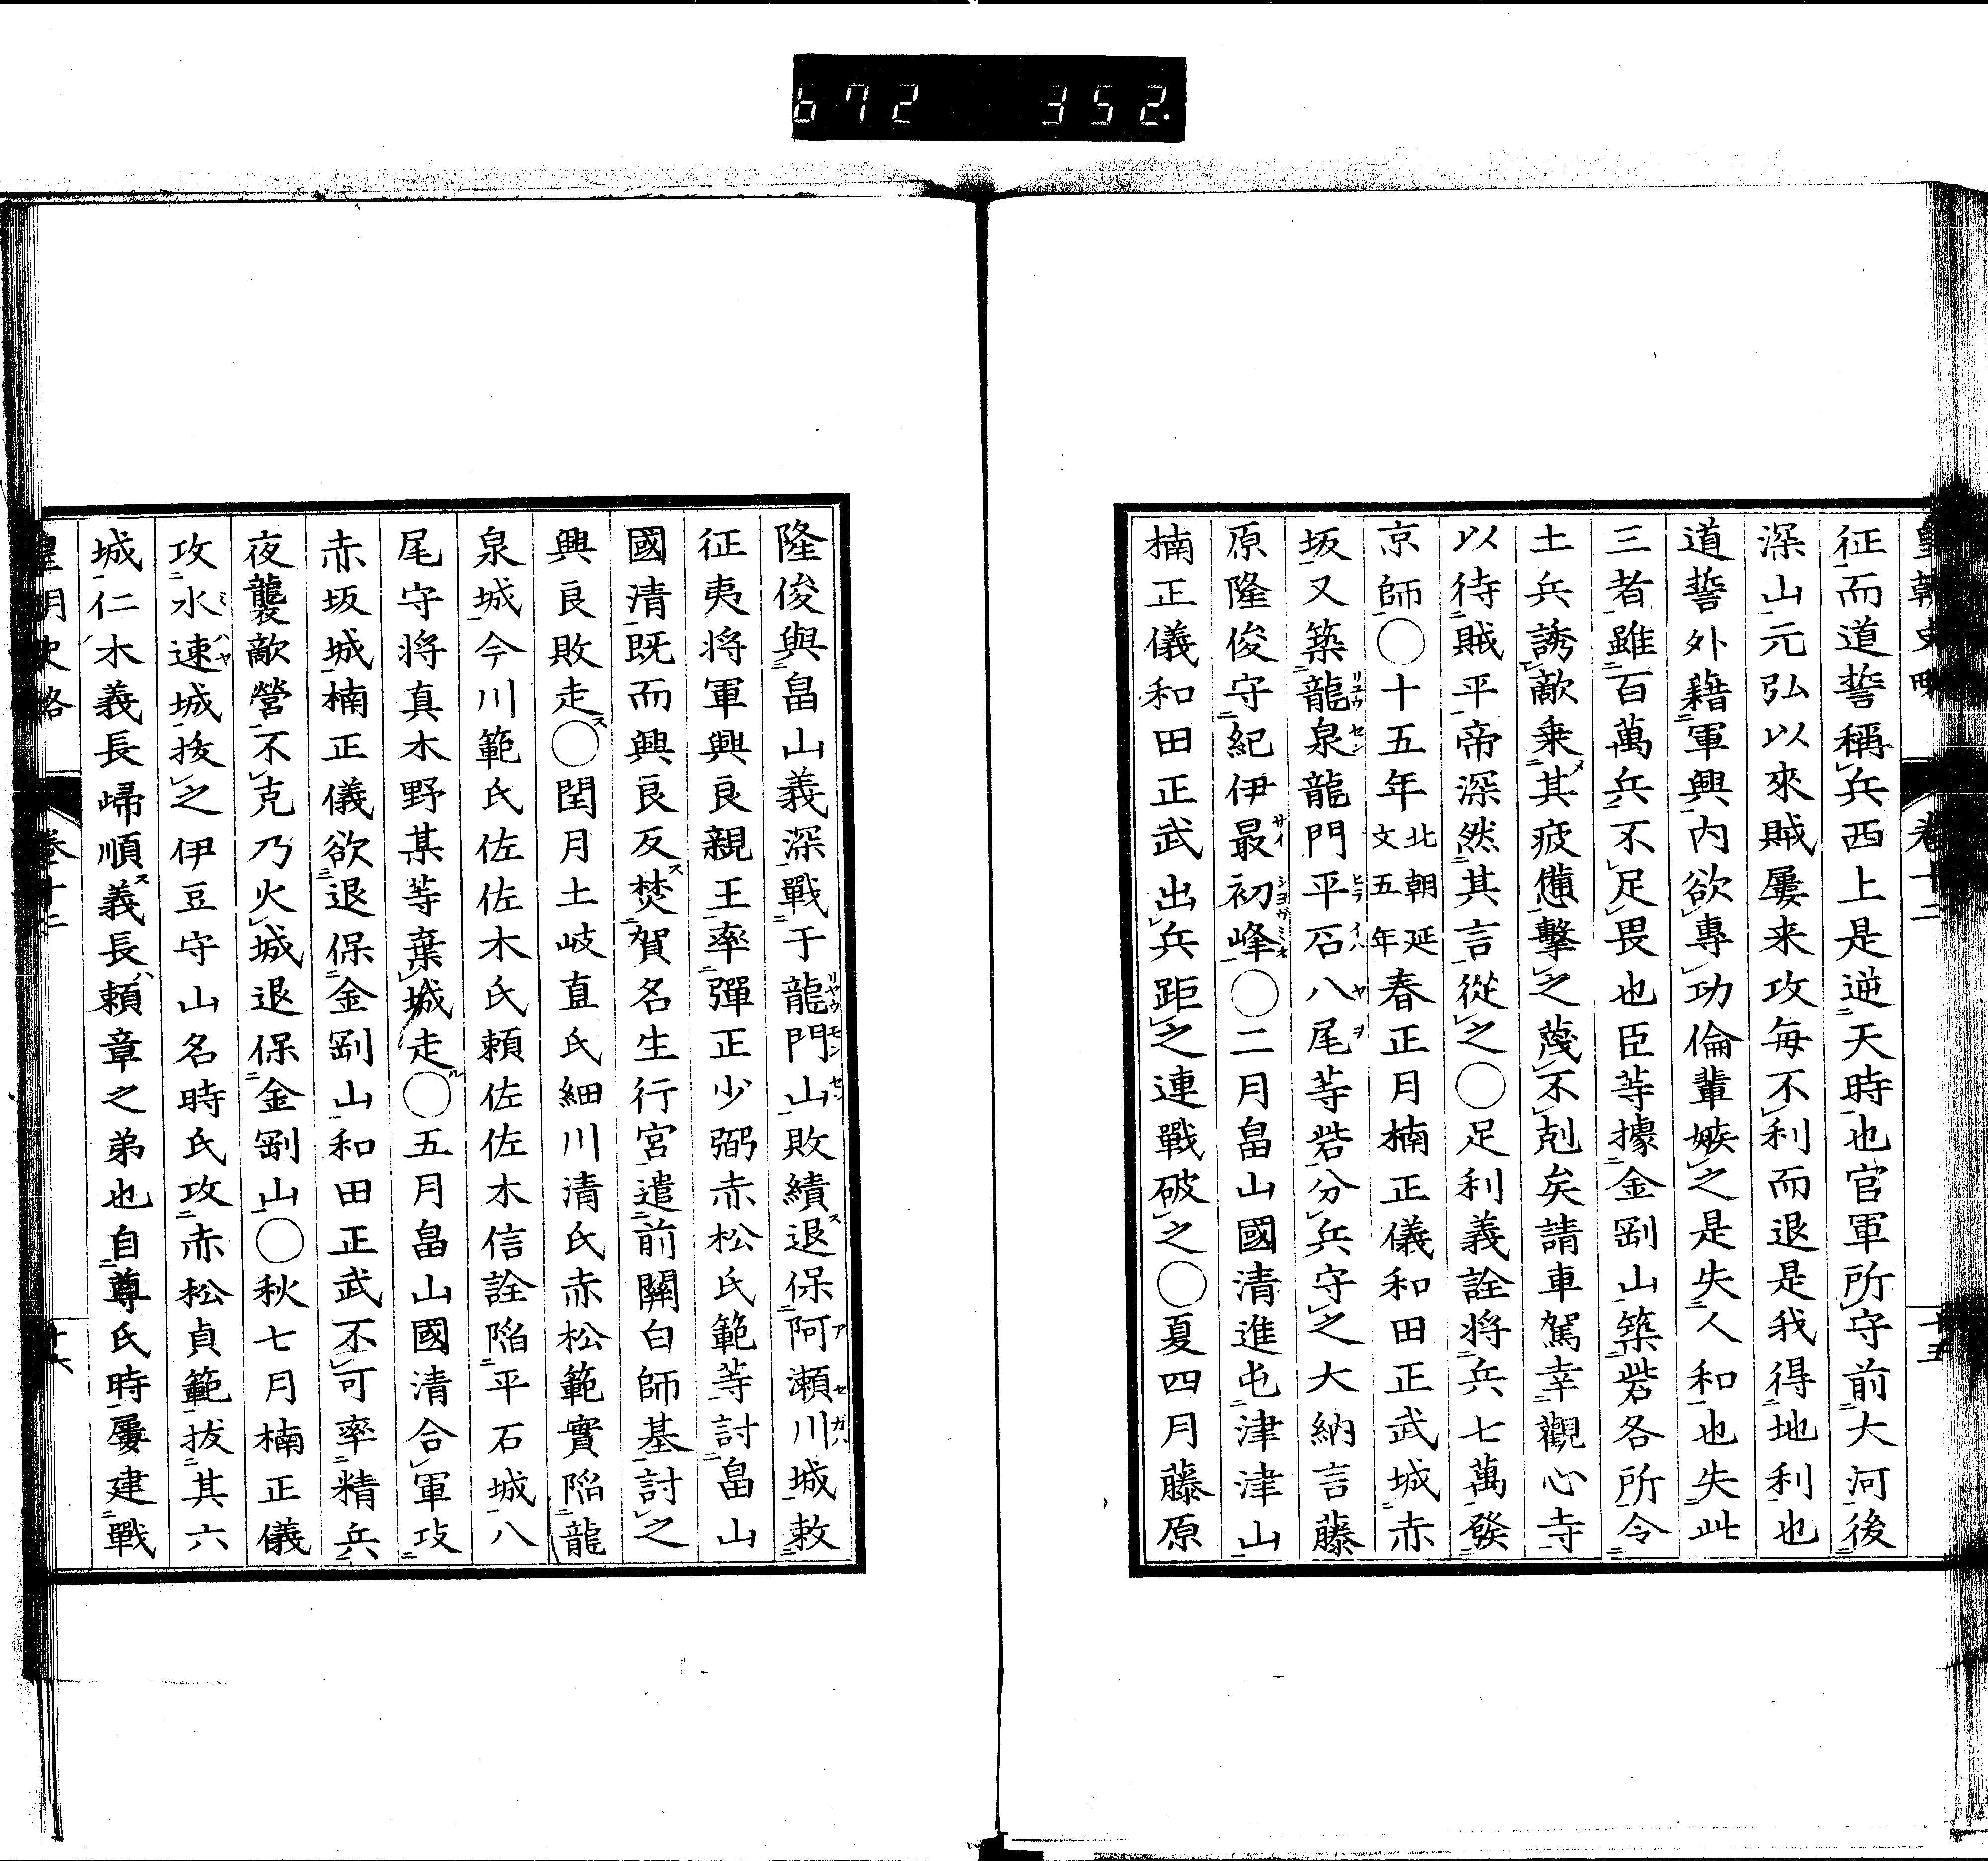 672 352.
征而道誓稱兵西上是逆天時也官軍所守前大河後
深山元弘以來賊屢来攻毎不利而退是我得地利也
道誓外藉軍興內欲專功倫輩嫉之是失人和也失此
三者雖百萬兵不足畏也臣等據金剛山築砦各所令
土兵誘敵乗其疲憊擊之蔑不剋矣請車駕幸觀心寺
以待賊平帝深然其言從之〇足利義詮將兵七萬發
京師〇十五年北朝延文五年春正月楠正儀和田正武城赤
坂又築龍泉龍門平石八尾等砦分兵守之大納言藤
原隆俊守紀伊最初峰〇二月畠山國清進屯津津山
楠正儀和田正武出兵距之連戰破之〇夏四月藤原
隆俊與畠山義深戰于龍門山敗績退保阿瀬川城敕
征夷將軍興良親王率彈正少弼赤松氏範等討畠山
國清既而興良反焚賀名生行宮遣前關白師基討之
興良敗走〇閏月土岐直氏細川清氏赤松範實陷龍
泉城今川範氏佐佐木氏頼佐佐木信詮陷平石城八
尾守将真木野某等棄城走〇五月畠山國清合軍攻
赤坂城楠正儀欲退保金剛山和田正武不可率精兵
夜襲敵營不克乃火城退保金剛山〇秋七月楠正儀
攻水速城拔之伊豆守山名時氏攻赤松貞範拔其六
城仁木義長歸順義長頼章之弟也自尊氏時屢建戰